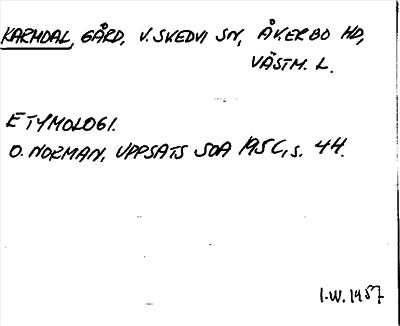 KARMDAL, GÅRD, V. SKEDVI SN, ÅKERBO HD,
VÄSTM. L.
ETYMOLOGI.
O. NORMAN, UPPSATS SOA 195C, s. 44.
I.W. 1957